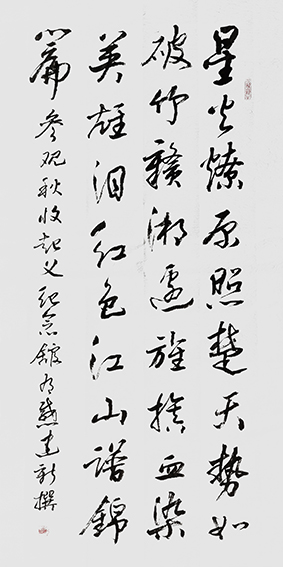 星火燎原照楚天勢如
破竹贛湘邊旌旗血染
英雄泪红色江山譜錦
篇 参观秋收起义纪念館有感建新撰